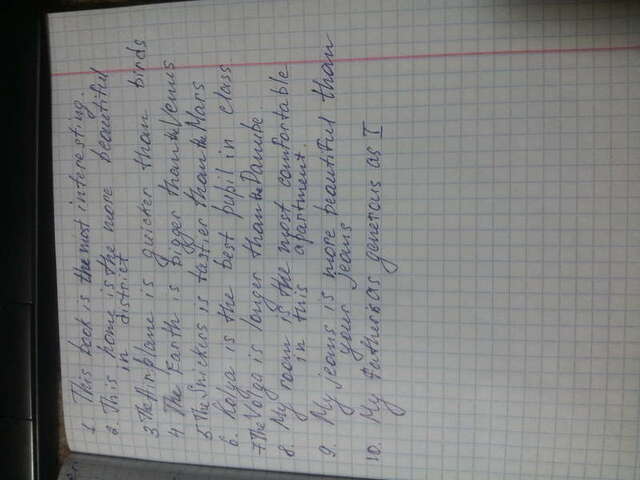 1. This back is the most interesting.
2. This home is the more beautiful
in district
3. The Airplane is quicker than birds
4. The Earth is bigger than the Venus
5 The Snickers is tastier than the Mars
6. Kolya is the best pupil in class
7. The Volga is longer than the Danube.
8. My room is the most comfortable
in this apartment.
9. My jeans is more beautiful than
your jeans
10. My father is as generous as I